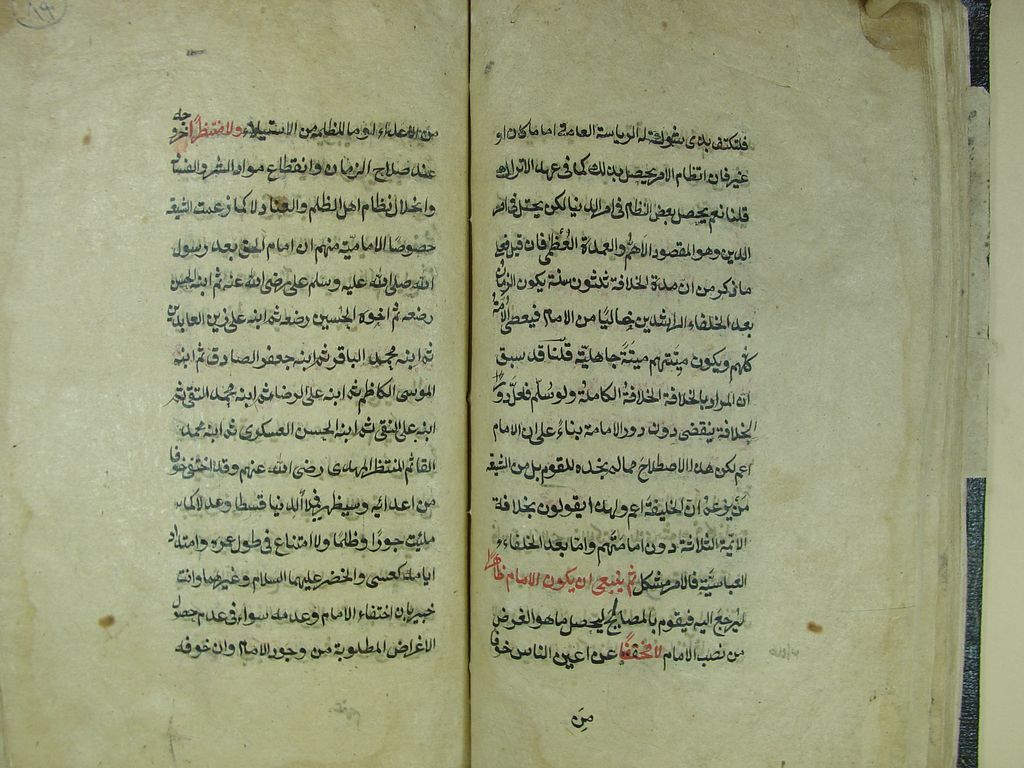 فلتكتف بذي شوكة له الرياسة العامة اماما كان او
غيره فان انتظام الامر يحصل بذلك كما في عهد الاتراك
قلنا نعم يحصل بعض النظام في امر الدنيا لكن يختل في امر
الدين وهو المقصود الاهم والعمدة العظمى فان قيل فعلى
ما ذكر من ان مدة الخلافة ثلثون سنة يكون الزمان
بعد الخلفاء الراشدين خاليا من الامام فيعصي الامة
كلهم ويكون ميتتهم ميتة جاهلية قلنا قد سبق
ان المراد بالخلافة الخلافة الكاملة ولو سلم فلعل دور
الخلافة ينقضي دون دور الامامة بناء على ان الامام
اعم لكن هذا الاصطلاح مما لم نجده للقوم بل من الشيعة
من يزعم ان الخليفة اعم ولهذا يقولون بخلافة
الائمة الثلاثة دون امامتهم واما بعد الخلفاء
العباسية فالامر مشكل ثم ينبغي ان يكون الامام ظاهرا
ليرجع اليه فيقوم بالمصالح ليحصل ما هو الغرض
من نصب الامام لا مختفيا عن اعين الناس خوفا
من الاعداء وما للظلمة من الاستيلاء ولا منتظرا خروجه
عند صلاح الزمان وانقطاع مواد الشر والفساد
وانحلال نظام اهل الظلم والعناد لا كما زعمت الشيعة
خصوصا الامامية منهم ان امام الحق بعد رسول
الله صلى الله عليه وسلم علي رضى الله عنه ثم ابنه الحسن
رضعه ثم اخوه الحسين رضعه ثم ابنه علي زين العابدين
ثم ابنه محمد الباقر ثم ابنه جعفر الصادق ثم ابنه
الموسى الكاظم ثم ابنه علي الرضاء ثم ابنه محمد التقي ثم
ابنه علي النقي ثم ابنه الحسن العسكري ثم ابنه محمد
القائم المنتظر المهدي رضى الله عنهم وقد اختفى خوفا
من اعدائه وسيظهر فيملأ الدنيا قسطا وعدلا كما
ملئت جورا وظلما ولا امتناع في طول عمره وامتداد
ايامه كعيسى والخضر عليهما السلام وغيرهما وانت
خبير بان اختفاء الامام وعدمه سواء في عدم حصول
الاغراض المطلوبة من وجود الامام وان خوفه